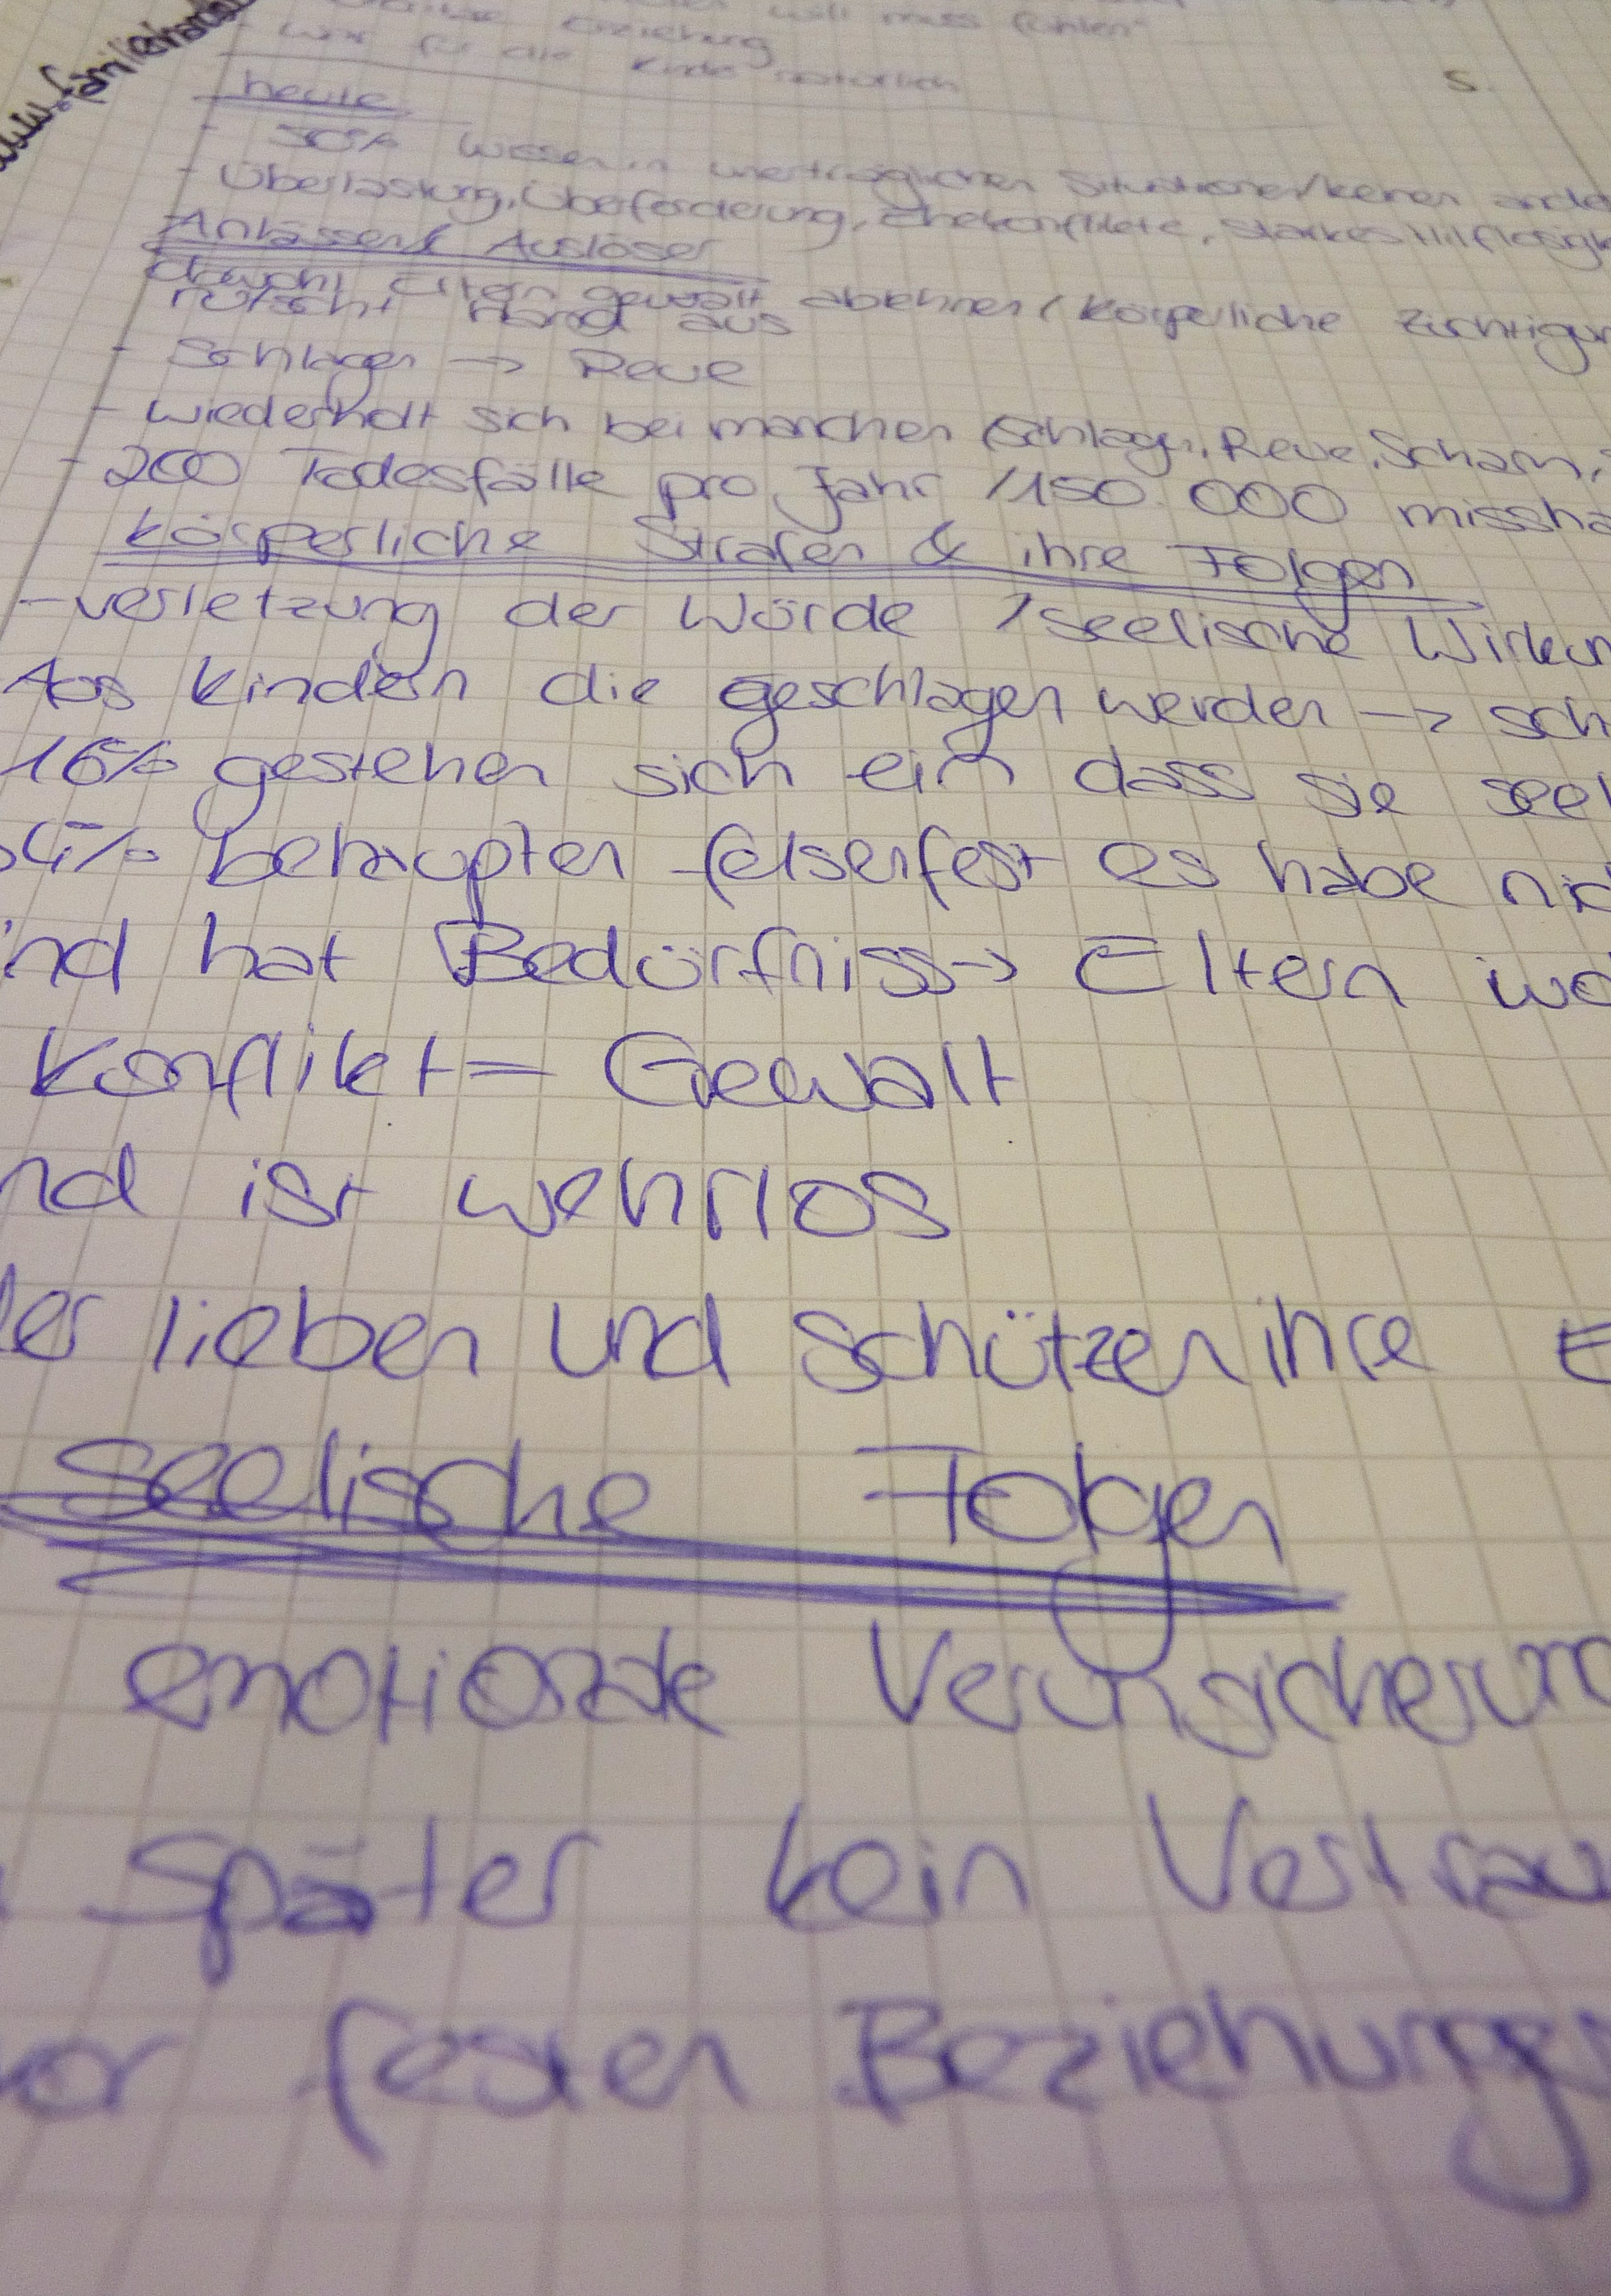 will muss fühlen"
Erziehung
- war für die Kinder natürlich
www.familienhand
S.
heute
- 50% wissen in unerträglichen Situationen/keinen ande
- Überlastung, Überforderung, Ehekonflikte, starkes Hilflosigk
Anlässe & Auslöser
obwohl Eltern gewalt ablehnen / körperliche Züchtigun
rutscht Hand aus
- Schlagen → Reue
- wiederholt sich bei manchen (Schlagen, Reue, Scham,
- 200 Todesfälle pro Jahr / 150.000 missha
körperliche Strafen & ihre Folgen
- verletzung der Würde / seelische Wirkun
Aus kindern die geschlagen werden → sch
16% gestehen sich ein dass sie seel
4% behaupten felsenfest es habe nic
ind hat Bedürfniss → Eltern wo
Konflikt = Gewalt
nd ist wehrlos
der lieben und schützen ihre E
seelische Folgen
emotionale Verunsicherun
später kein Vertrau
vor festen Beziehunge